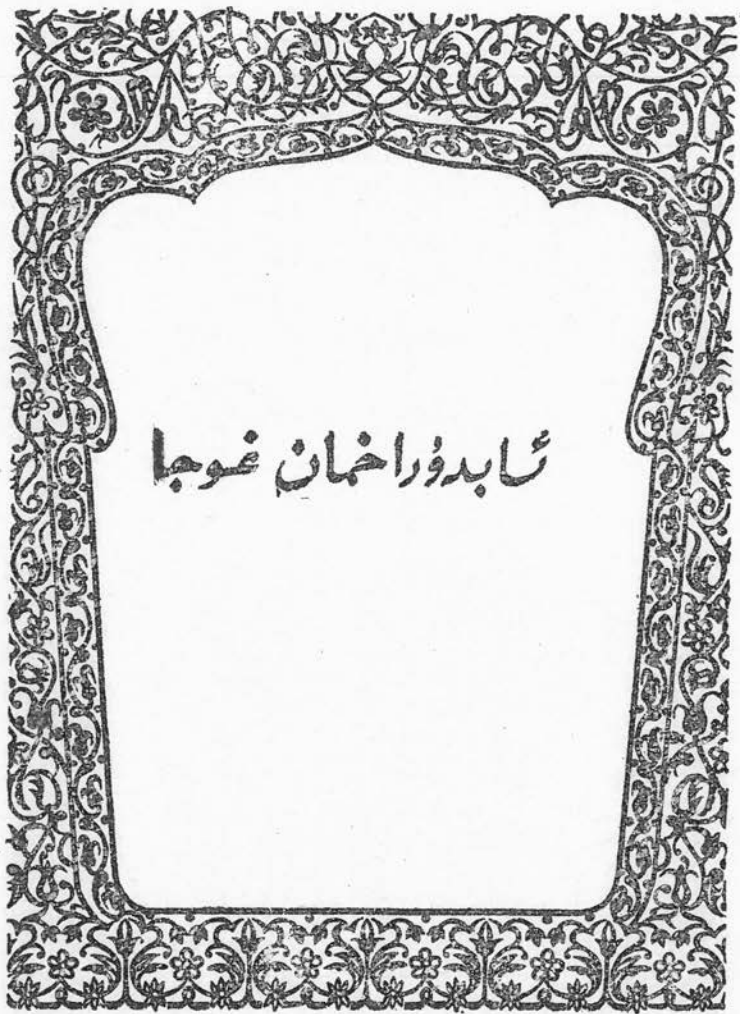 ئابدۇراخمان غوجا